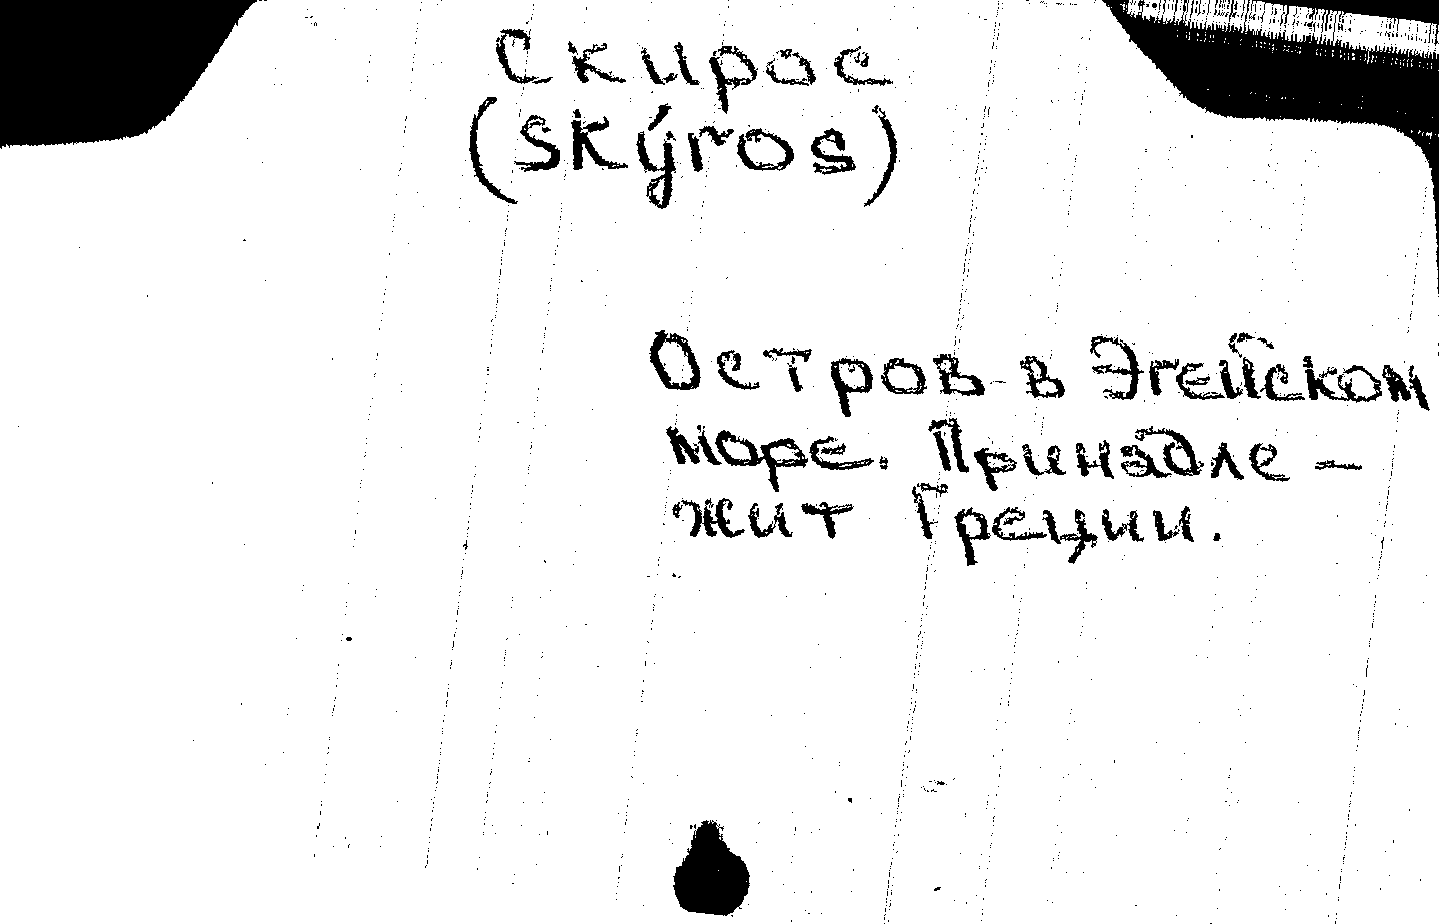 Скирос
(Skýros)
Остров в Эгейском
море. Принадле -
жит Греции.